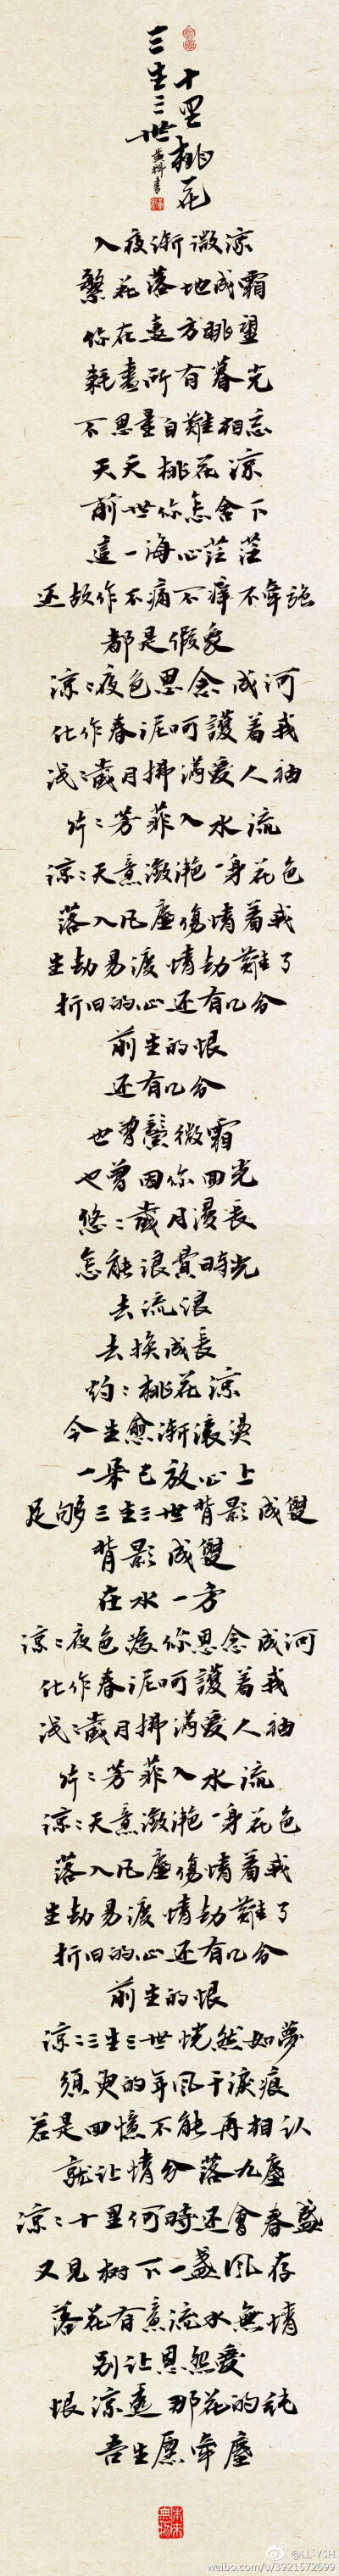 三生三世
十里桃花
入夜渐微凉
繁花落地成霜
你在遠方眺望
耗盡所有暮光
不思量自難相忘
夭夭桃花凉
前世你怎舍下
這一海心茫茫
还故作不痛不痒不牵強
都是假象
凉〻夜色思念成河
化作春泥呵護着我
浅〻歲月拂满愛人袖
片〻芳菲入水流
凉〻天意潋滟一身花色
落入凡塵傷情着我
生劫易渡情劫難了
折旧的心还有几分
前生的恨
还有几分
也曾鬓微霜
也曾因你回光
悠〻歲月漫長
怎能浪費時光
去流浪
去换成長
灼〻桃花凉
今生愈漸滚燙
一朵已放心上
足够三生三世背影成雙
背影成雙
在水一方
凉〻夜色為你思念成河
化作春泥呵護着我
浅〻歲月拂满愛人袖
片〻芳菲入水流
凉〻天意潋滟一身花色
落入凡塵傷情着我
生劫易渡情劫難了
折旧的心还有几分
前生的恨
凉〻三生三世恍然如夢
須臾的年风干淚痕
若是回憶不能再相认
就让情分落九塵
凉〻十里何時还會春盛
又见树下一盏风存
落花有意流水無情
别让恩怨愛
恨凉透那花的纯
吾生愿牵塵
@LL-YSH
weibo.com/u/3921572699